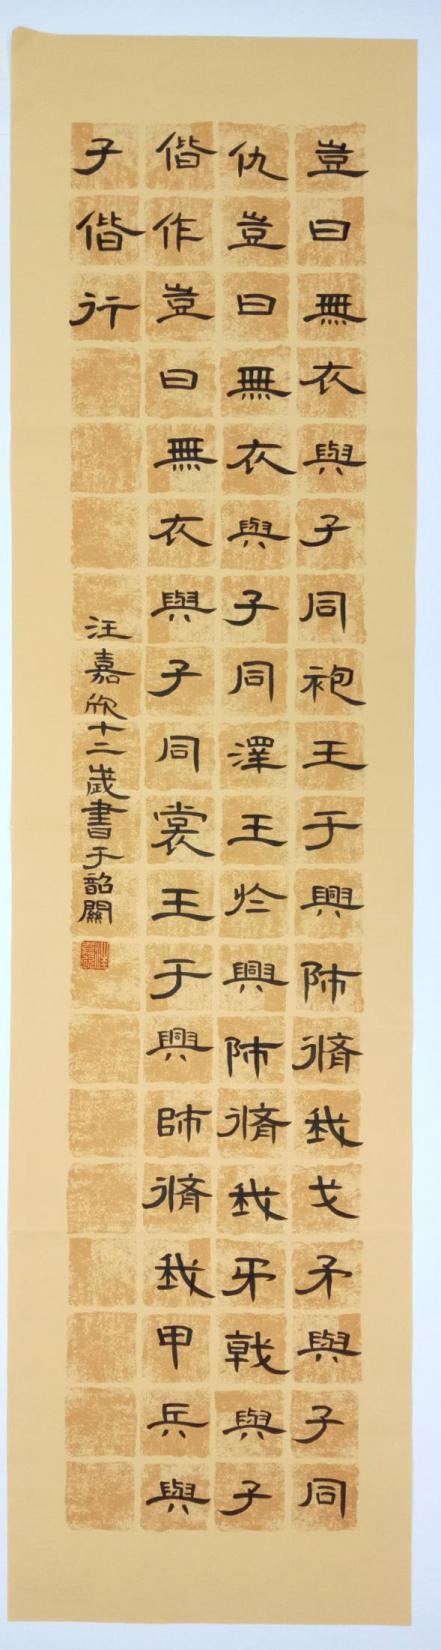 豈曰無衣與子同袍王于興師脩我戈矛與子同
仇豈曰無衣與子同澤王於興師脩我矛戟與子
偕作豈曰無衣與子同裳王于興師脩我甲兵與
子偕行
汪嘉欣十二歲書于韶關